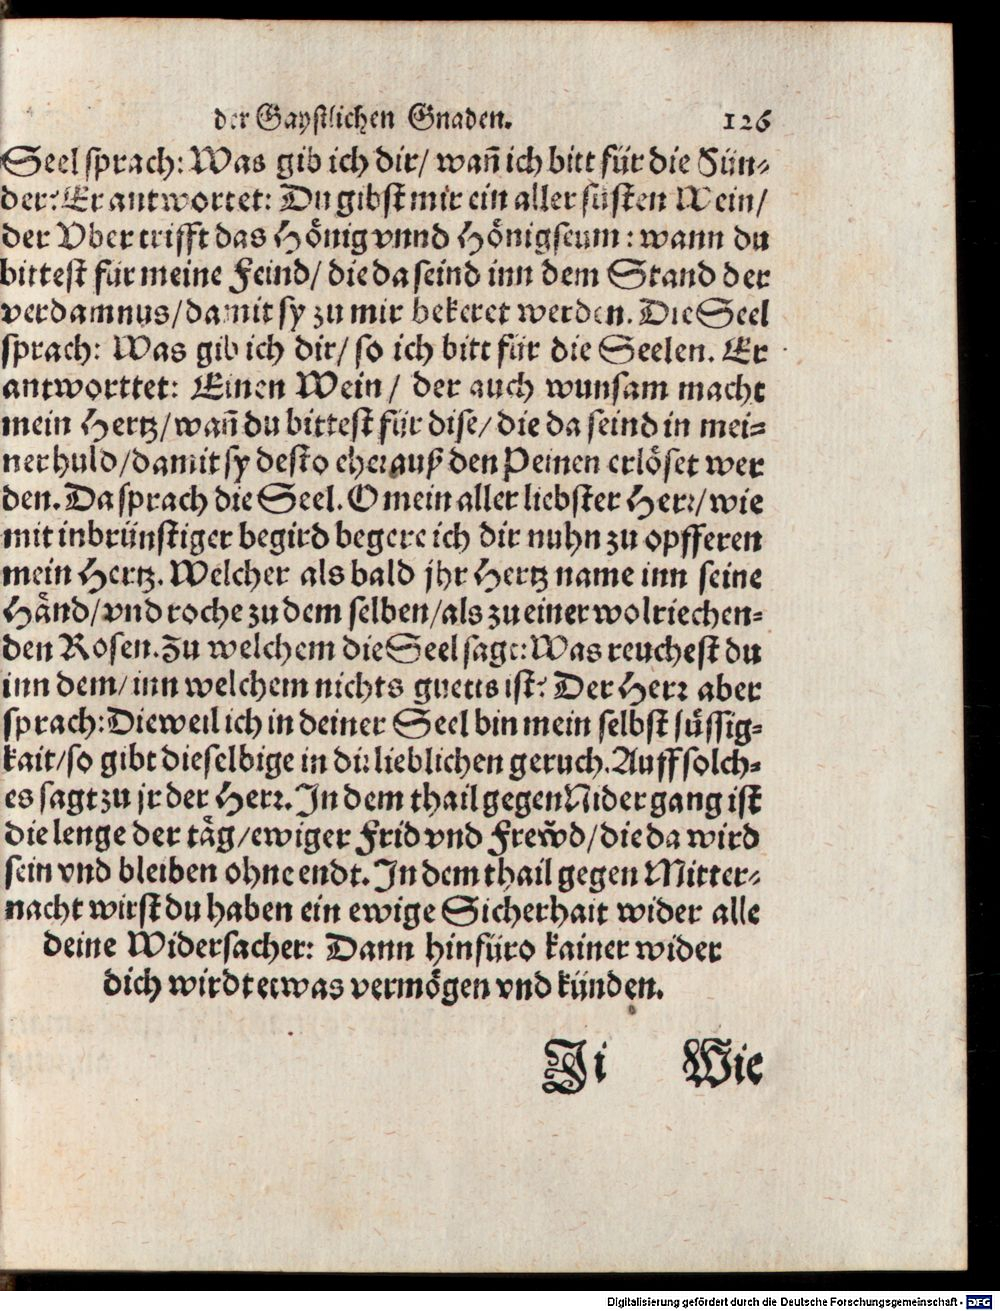 der Gaystlichen Gnaden. 126
Seel sprach: Was gib ich dir/ wañ ich bitt für die Sün-
der? Er antwortet: Du gibst mir ein aller süsten Wein/
der Vbertrifft das Hönig vnnd Hönigseum: wann du
bittest für meine Feind/ die da seind inn dem Stand der
verdamnus/ damit sy zu mir bekeret werden. Die Seel
sprach: Was gib ich dir/ so ich bitt für die Seelen. Er
antworttet: Einen Wein/ der auch wunsam macht
mein Hertz/ wañ du bittest für dise/ die da seind in mei-
ner huld/ damit sy desto eher auß den Peinen erlöset wer
den. Da sprach die Seel. O mein aller liebster Herr/ wie
mit inbrünstiger begird begere ich dir nuhn zu opfferen
mein Hertz. Welcher als bald jhr Hertz name inn seine
Händ/ vnd roche zu dem selben/ als zu einer wolriechen-
den Rosen. Zu welchem die Seel sagt: Was reuchest du
inn dem/ inn welchem nichts guetts ist? Der Herr aber
sprach: Dieweil ich in deiner Seel bin mein selbst süssig-
kait/ so gibt dieselbige in dir lieblichen geruch. Auff solch-
es sagt zu jr der Herr. In dem thail gegen Nidergang ist
die lenge der täg/ ewiger Frid vnd Frewd/ die da wird
sein vnd bleiben ohne endt. In dem thail gegen Mitter-
nacht wirst du haben ein ewige Sicherhait wider alle
deine Widersacher: Dann hinfüro kainer wider
dich wirdt etwas vermögen vnd künden.
Ji Wie
Digitalisierung gefördert durch die Deutsche Forschungsgemeinschaft - DFG